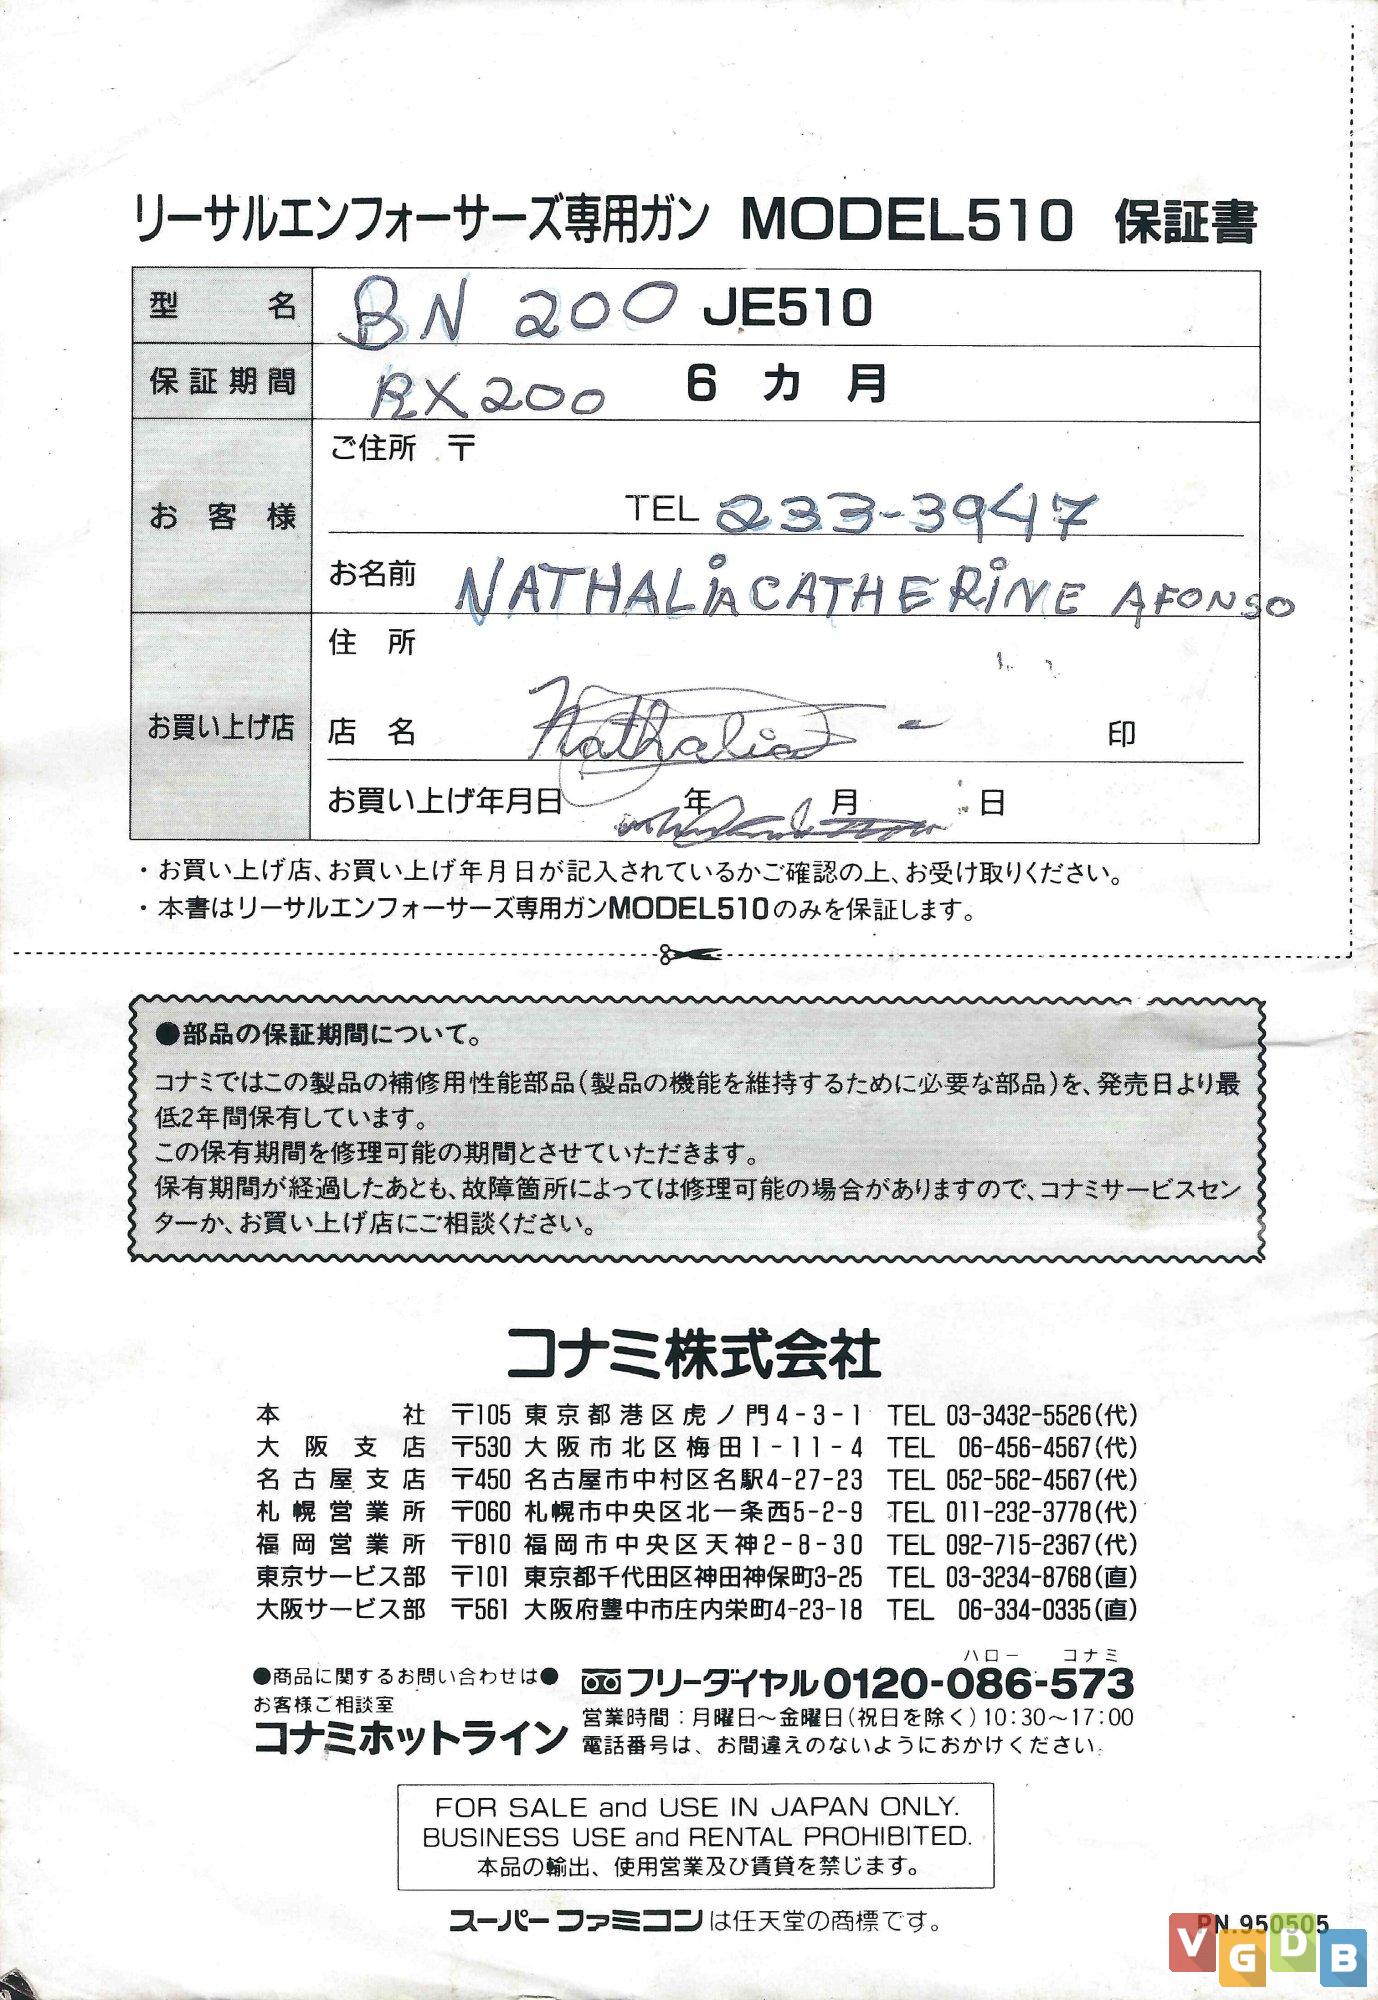 リーサルエンフォーサーズ専用ガン MODEL510 保証書
型名 BN 200 JE510
保証期間 RX200 6カ月
お客様 ご住所 〒
TEL 233-3947
お名前 NATHALiA CATHERiNE AFONSO
お買い上げ店 住所
店名 Nathalia 印
お買い上げ年月日 年 月 日
・お買い上げ店、お買い上げ年月日が記入されているかご確認の上、お受け取りください。
・本書はリーサルエンフォーサーズ専用ガンMODEL510のみを保証します。
●部品の保証期間について。
コナミではこの製品の補修用性能部品(製品の機能を維持するために必要な部品)を、発売日より最
低2年間保有しています。
この保有期間を修理可能の期間とさせていただきます。
保有期間が経過したあとも、故障箇所によっては修理可能の場合がありますので、コナミサービスセン
ターか、お買い上げ店にご相談ください。
コナミ株式会社
本社 〒105 東京都港区虎ノ門4-3-1 TEL 03-3432-5526(代)
大阪支店 〒530 大阪市北区梅田1-11-4 TEL 06-456-4567(代)
名古屋支店 〒450 名古屋市中村区名駅4-27-23 TEL 052-562-4567(代)
札幌営業所 〒060 札幌市中央区北一条西5-2-9 TEL 011-232-3778(代)
福岡営業所 〒810 福岡市中央区天神2-8-30 TEL 092-715-2367(代)
東京サービス部 〒101 東京都千代田区神田神保町3-25 TEL 03-3234-8768(直)
大阪サービス部 〒561 大阪府豊中市庄内栄町4-23-18 TEL 06-334-0335(直)
●商品に関するお問い合わせは●
お客様ご相談室
コナミホットライン
ハロー コナミ
フリーダイヤル0120-086-573
営業時間:月曜日～金曜日(祝日を除く)10:30～17:00
電話番号は、お間違えのないようにおかけください。
FOR SALE and USE IN JAPAN ONLY.
BUSINESS USE and RENTAL PROHIBITED.
本品の輸出、使用営業及び賃貸を禁じます。
スーパーファミコンは任天堂の商標です。
PN.950505
VGDB